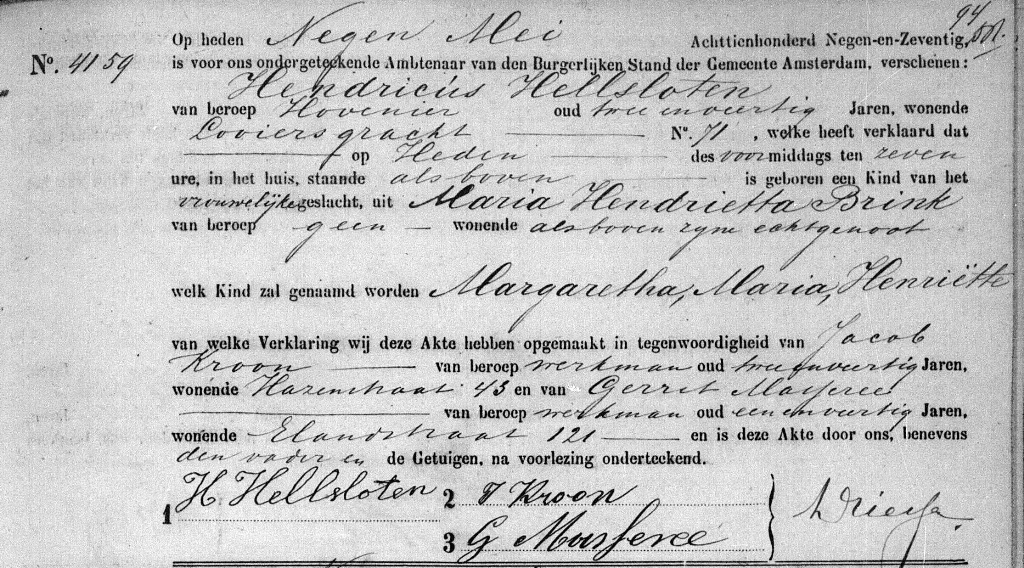 94
Op heden Negen Mei Achttienhonderd Negen-en-Zeventig,
No. 4159 is voor ons ondergeteekende Ambtenaar van den Burgerlijken Stand der Gemeente Amsterdam, verschenen:
Hendricus Hellsloten
van beroep Hovenier oud twee en veertig Jaren, wonende
Looiersgracht No. 71, welke heeft verklaard dat
op Heden des voormiddags ten zeven
ure, in het huis, staande als boven is geboren een Kind van het
vrouwelijke geslacht, uit Maria Hendrietta Brink
van beroep geen wonende als boven zyne echtgenoot
welk Kind zal genaamd worden Margaretha, Maria, Henriëtte
van welke Verklaring wij deze Akte hebben opgemaakt in tegenwoordigheid van Jacob
Kroon van beroep werkman oud twee en veertig Jaren,
wonende Hazenstraat 43 en van Gerrit Masseree
van beroep werkman oud een en veertig Jaren,
wonende Elandstraat 121 en is deze Akte door ons, benevens
den vader en de Getuigen, na voorlezing onderteekend.
1 H Hellsloten 2 J Kroon
3 G Masseree